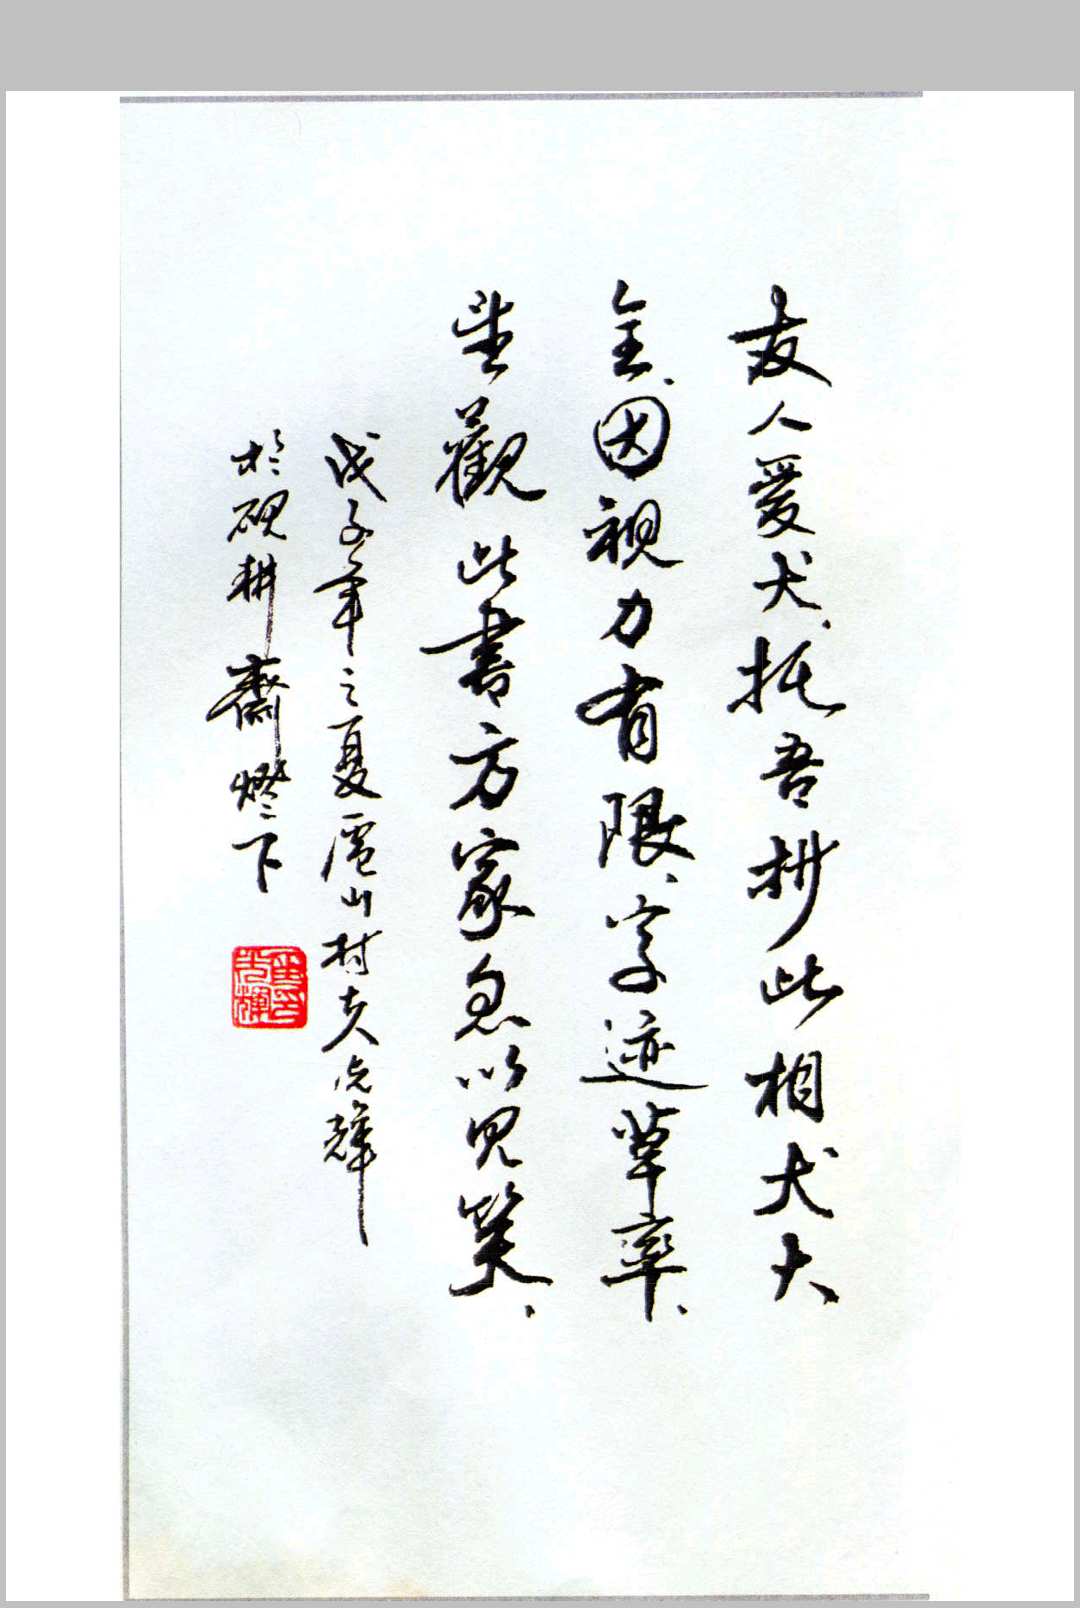 友人爱犬、托吾抄此相犬大
全、因视力有限、字迹草率、
望觀此書方家忽以見笑、
戊子年之夏廬山村夫光輝
於硯耕齋燈下